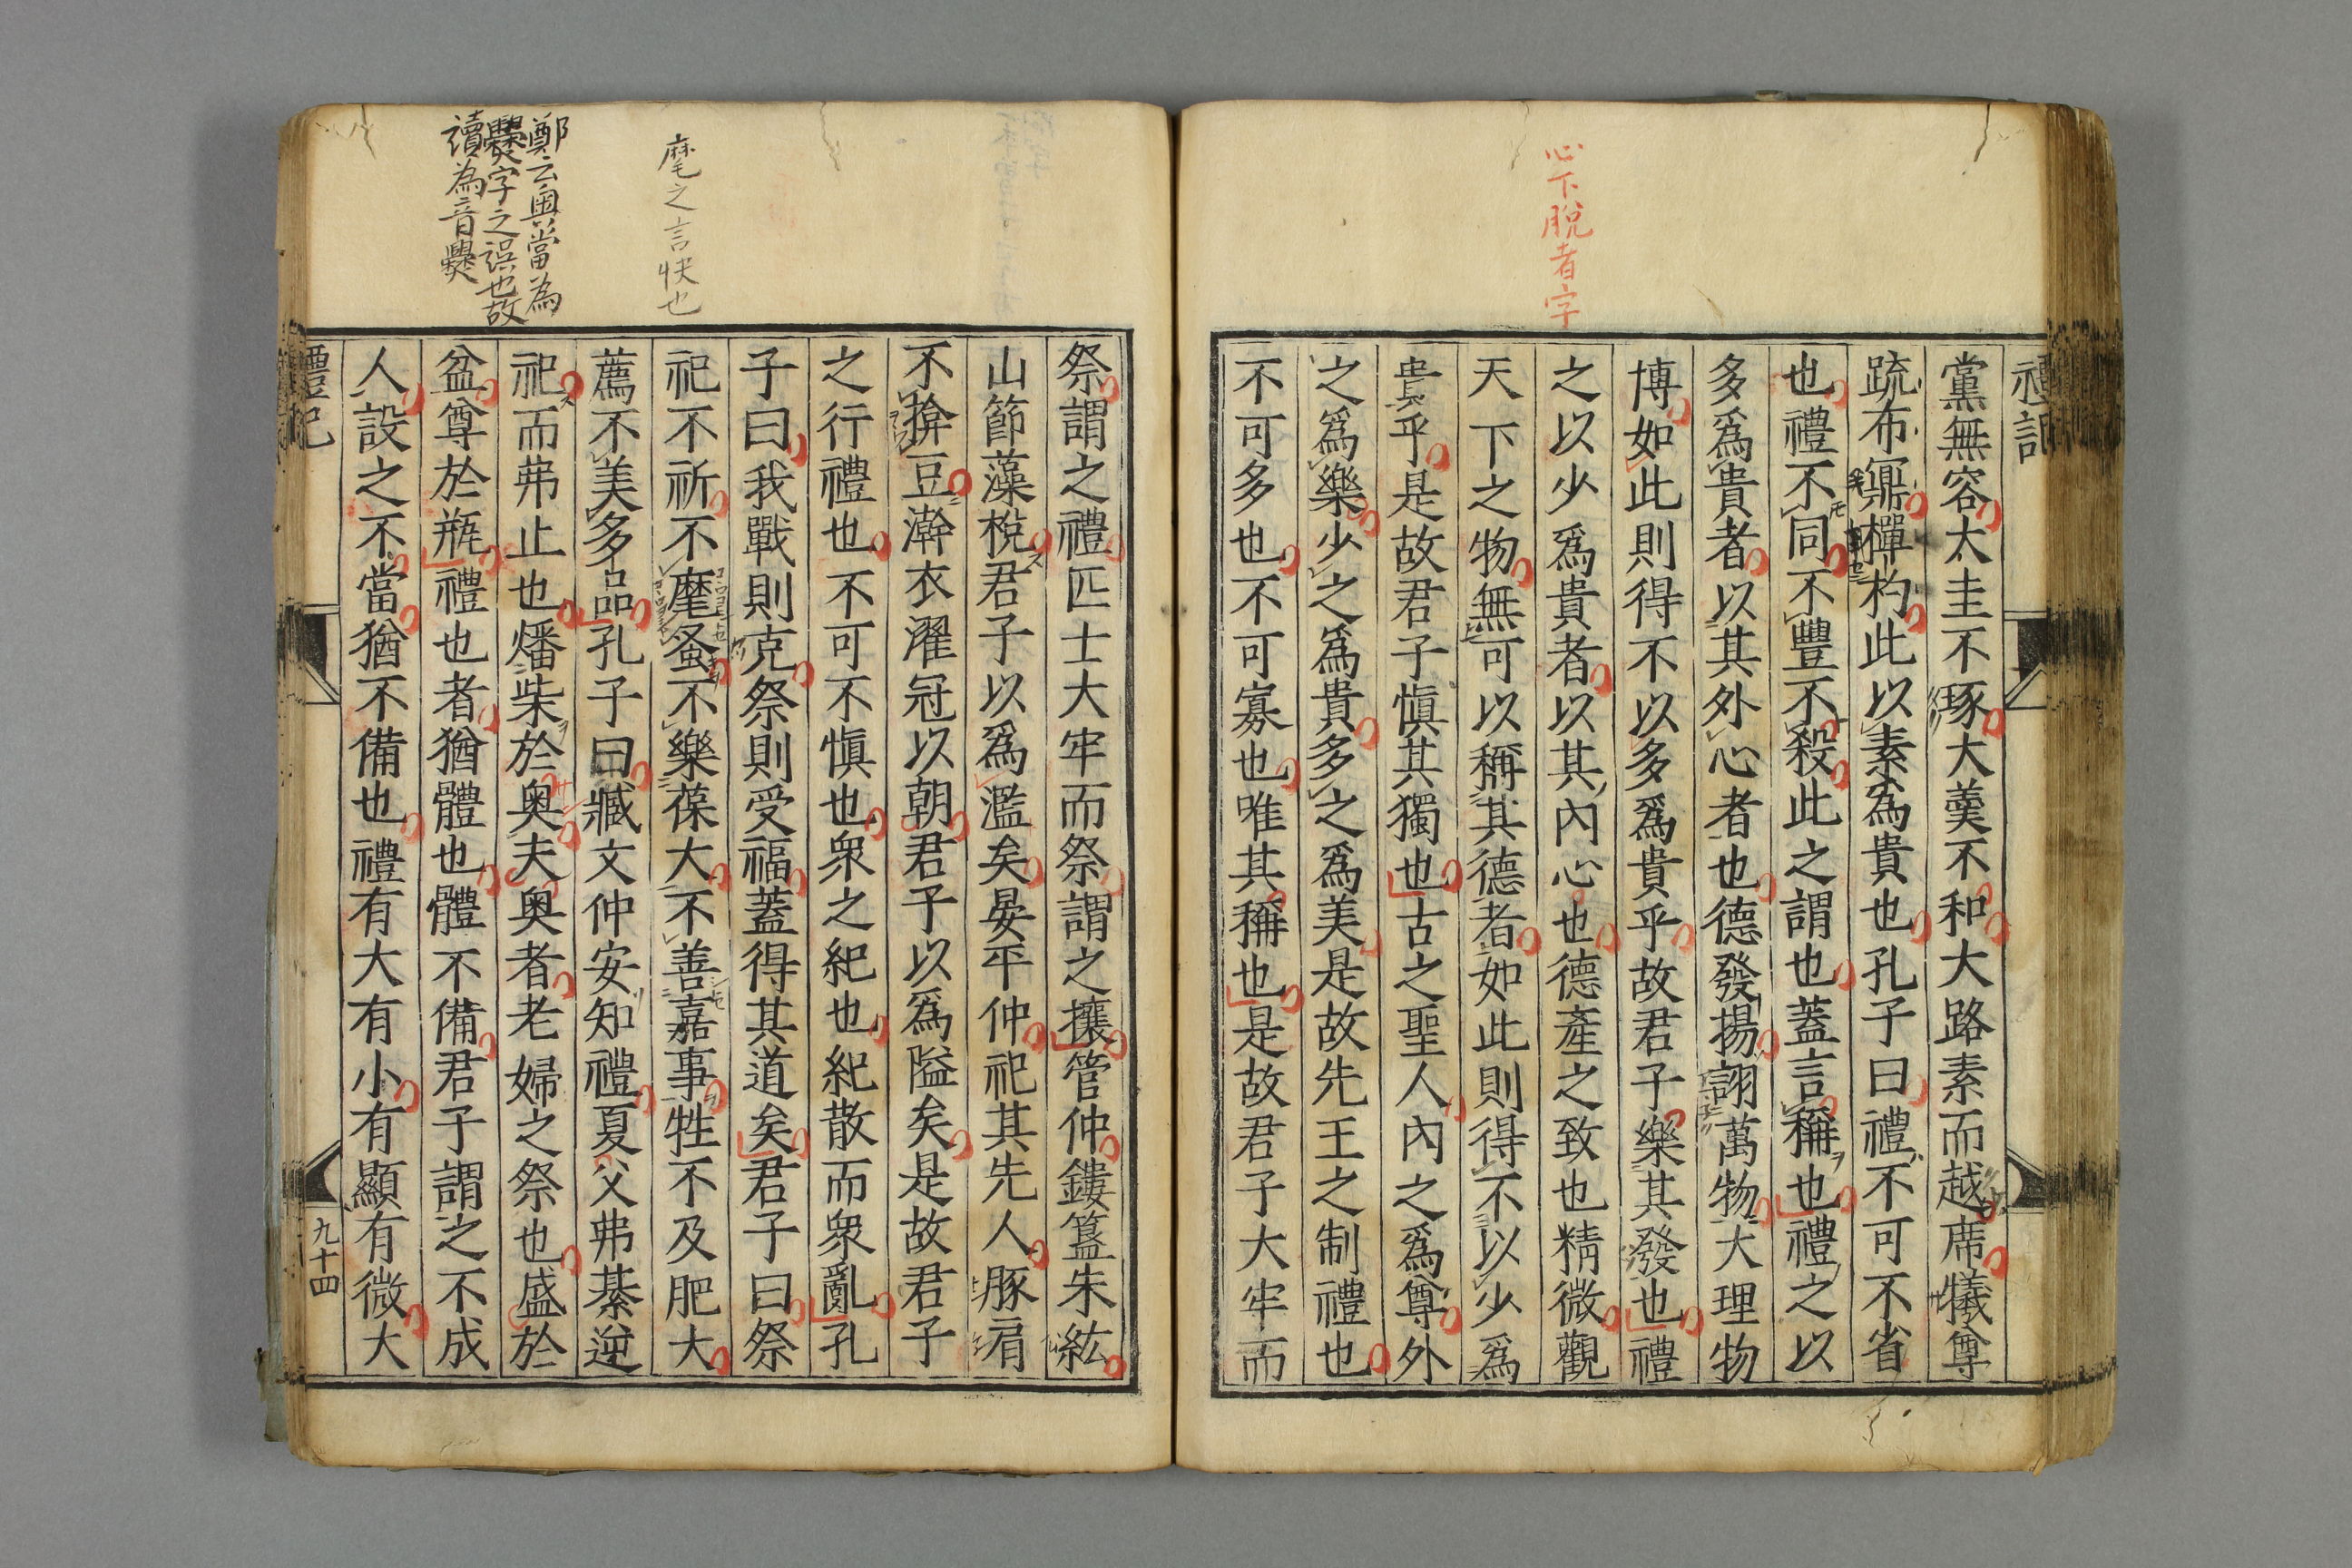 心下脫者字
禮記
黨無容太圭不琢大羹不和大路素而越席犧尊
疏布鼏樿杓此以素為貴也孔子曰禮不可不省
也禮不同不豐不殺此之謂也蓋言稱也禮之以
多爲貴者以其外心者也德發揚詡萬物大理物
博如此則得不以多爲貴乎故君子樂其發也禮
之以少爲貴者以其內心也德產之致也精微觀
天下之物無可以稱其德者如此則得不以少爲
貴乎是故君子愼其獨也古之聖人內之爲尊外
之爲樂少之爲貴多之爲美是故先王之制禮也
不可多也不可寡也唯其稱也是故君子大牢而
麾之言快也
鄭云奧當為
爨字之誤也故
讀為音爨
祭謂之禮匹士大牢而祭謂之攘管仲鏤簋朱紘
山節藻梲君子以爲濫矣晏平仲祀其先人豚肩
不揜豆澣衣濯冠以朝君子以爲隘矣是故君子
之行禮也不可不愼也衆之紀也紀散而衆亂孔
子曰我戰則克祭則受福蓋得其道矣君子曰祭
祀不祈不麾蚤不樂葆大不善嘉事牲不及肥大
薦不美多品孔子曰臧文仲安知禮夏父弗綦逆
祀而弗止也燔柴於奧夫奧者老婦之祭也盛於
盆尊於瓶禮也者猶體也體不備君子謂之不成
人設之不當猶不備也禮有大有小有顯有微大
禮記
九十四